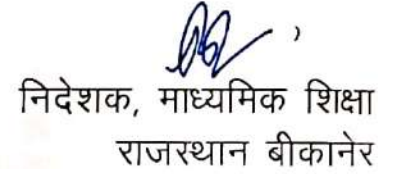 निदेशक, माध्यमिक शिक्षा
राजस्थान बीकानेर